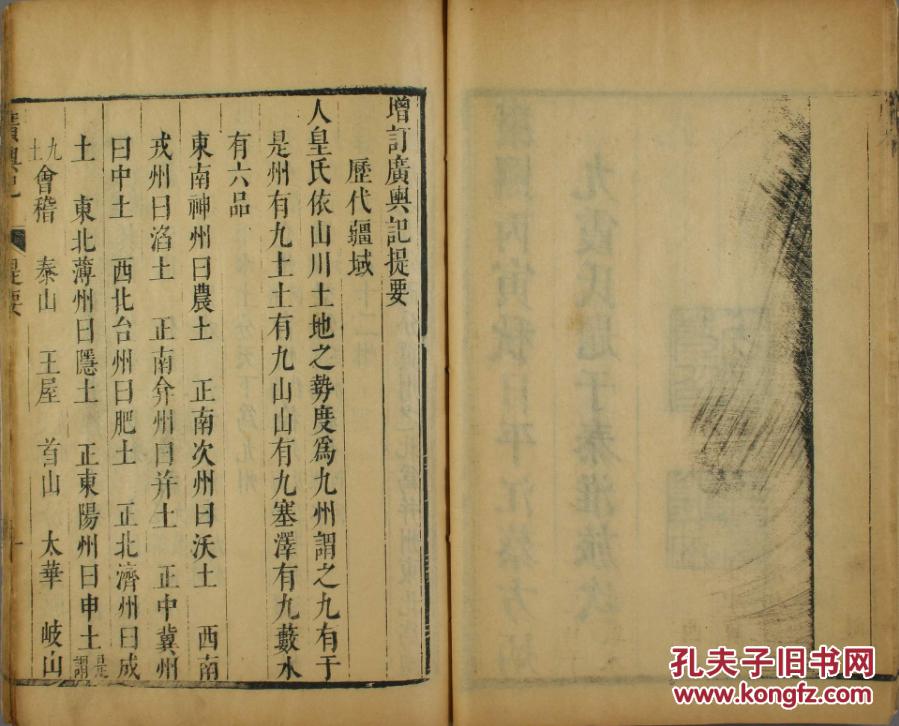 增訂廣輿記提要
歷代疆域
人皇氏依山川土地之勢度爲九州謂之九有于
是州有九土土有九山山有九塞澤有九藪水
有六品
東南神州曰農土 正南次州曰沃土 西南
戎州曰滔土 正南弇州曰并土 正中冀州
曰中土 西北台州曰肥土 正北濟州曰成
土 東北薄州曰隱土 正東陽州曰申土是謂
九土會稽 泰山 王屋 首山 太華 岐山
提要
孔夫子旧书网
www.kongfz.com